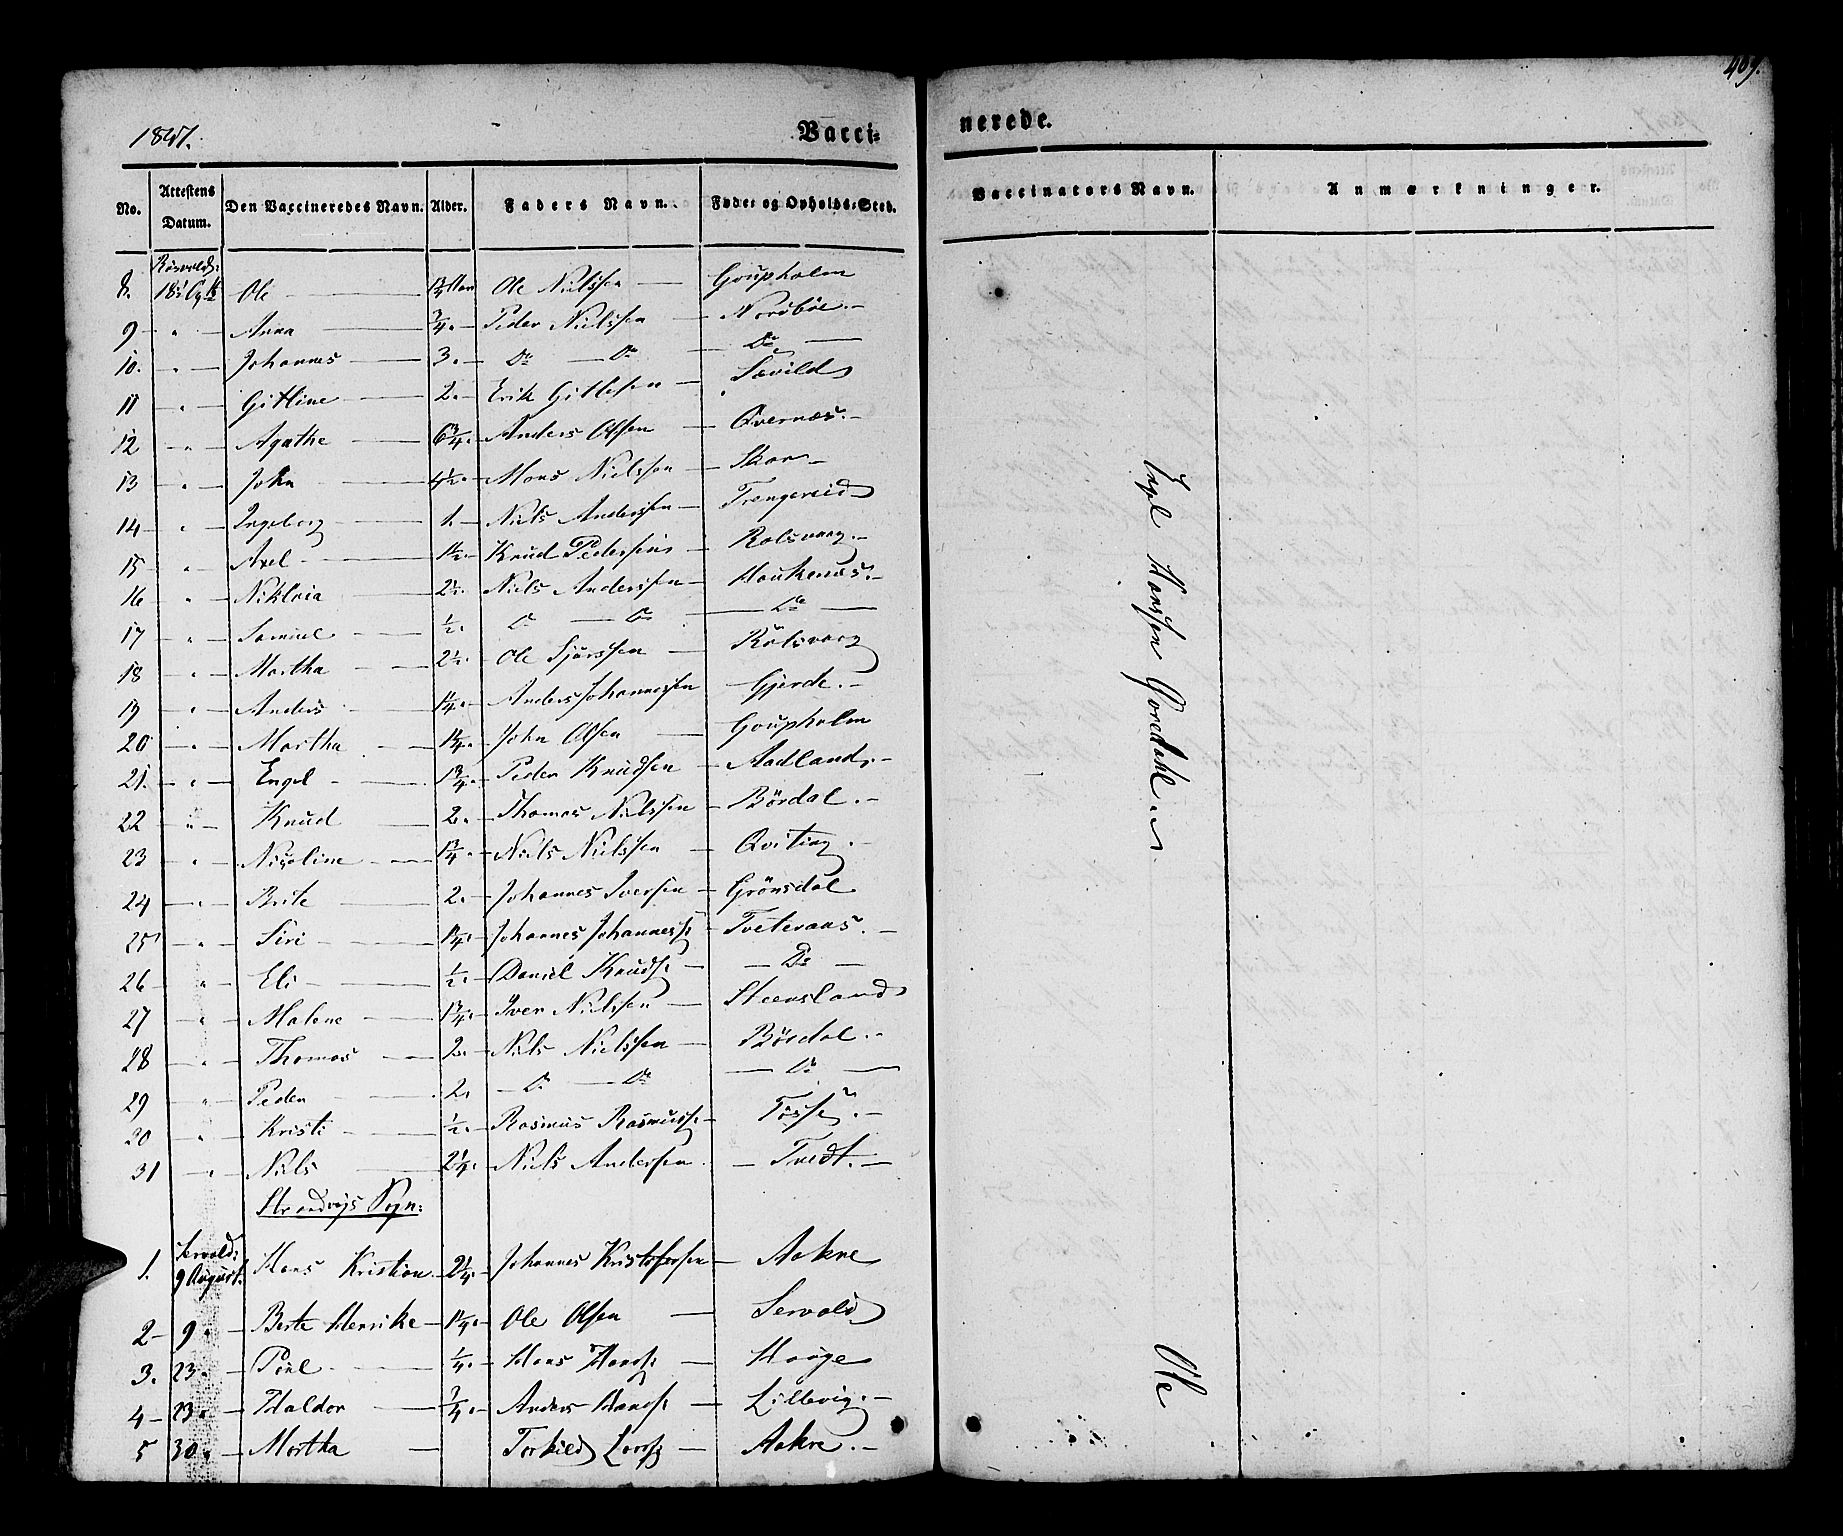 409.
1847.
Vacci=
nerede.
No. Attestens Datum. Den Vaccineredes Navn. Alder. Faders Navn. Føde: og Opholds-Sted.
Vaccinators Navn. Anmærkninger.
8. Ole Ole Nielssen Goupholm
9 " Anna 3/4. Peder Nielssen Nordbøe.
10. " Johannes 3. Do Do Do
11 " Gitline 2. Erik Gitlesen Sævild
12 " Agathe 6 3/4. Anders Olsen Qvernæs.
13 " John 4 1/2. Mons Nielssen Skor
14 " Ingeborg 1. Niels Anderssen Trengereid
15 " Axel 1 1/2. Knud Pederssen Rolsvaag.
16 " Niklaia 2 1/2. Niels Anderssen Haukenæs.
17 " Samuel 1/2. Do Do Do
18 " Martha 2 1/2. Ole Sjurssen Rolsvaag
19 " Anders 1 1/4. Anders Johannessen Gjerde.
20 " Martha 1 1/4. John Olsen Goupholm
21. " Engel 1 3/4. Peder Knudsen Aadland.
22 " Knud 2. Thomas Nielssen Bördal.
23 " Nicoline 1 3/4. Niels Nielssen Qviting.
24 " Brite 2. Johannes Iversen Grönsdal
25 " Siri 1 1/4. Johannes Johanness: Tveteraas.
26 " Eli 1/2. Daniel Knuds: Do
27 " Malene 1 3/4. Iver Nielssen Steensland
28 " Thomas 2. Niels Nielssen Bördal.
29 " Peder 2. Do Do Do
30 " Kristi 1/2. Rasmus Rasmuss: Tösse.
31 " Niels 2 1/4. Niels Andersen Tvedt.
Strandvigs Sogn:
1. 9 August. Hans Kristian 2 1/4. Johannes Kristofersen Aakre
2 9 " Berte Henrike 1 1/4. Ole Olsen Servold
3. 23. Poul 1/4. Hans Hans: Hauge
4 23. Haldor 3/4. Anders Hans: Lillevig.
5 30. Martha Torkild Lars: Aakre.
Hanssen
Ole